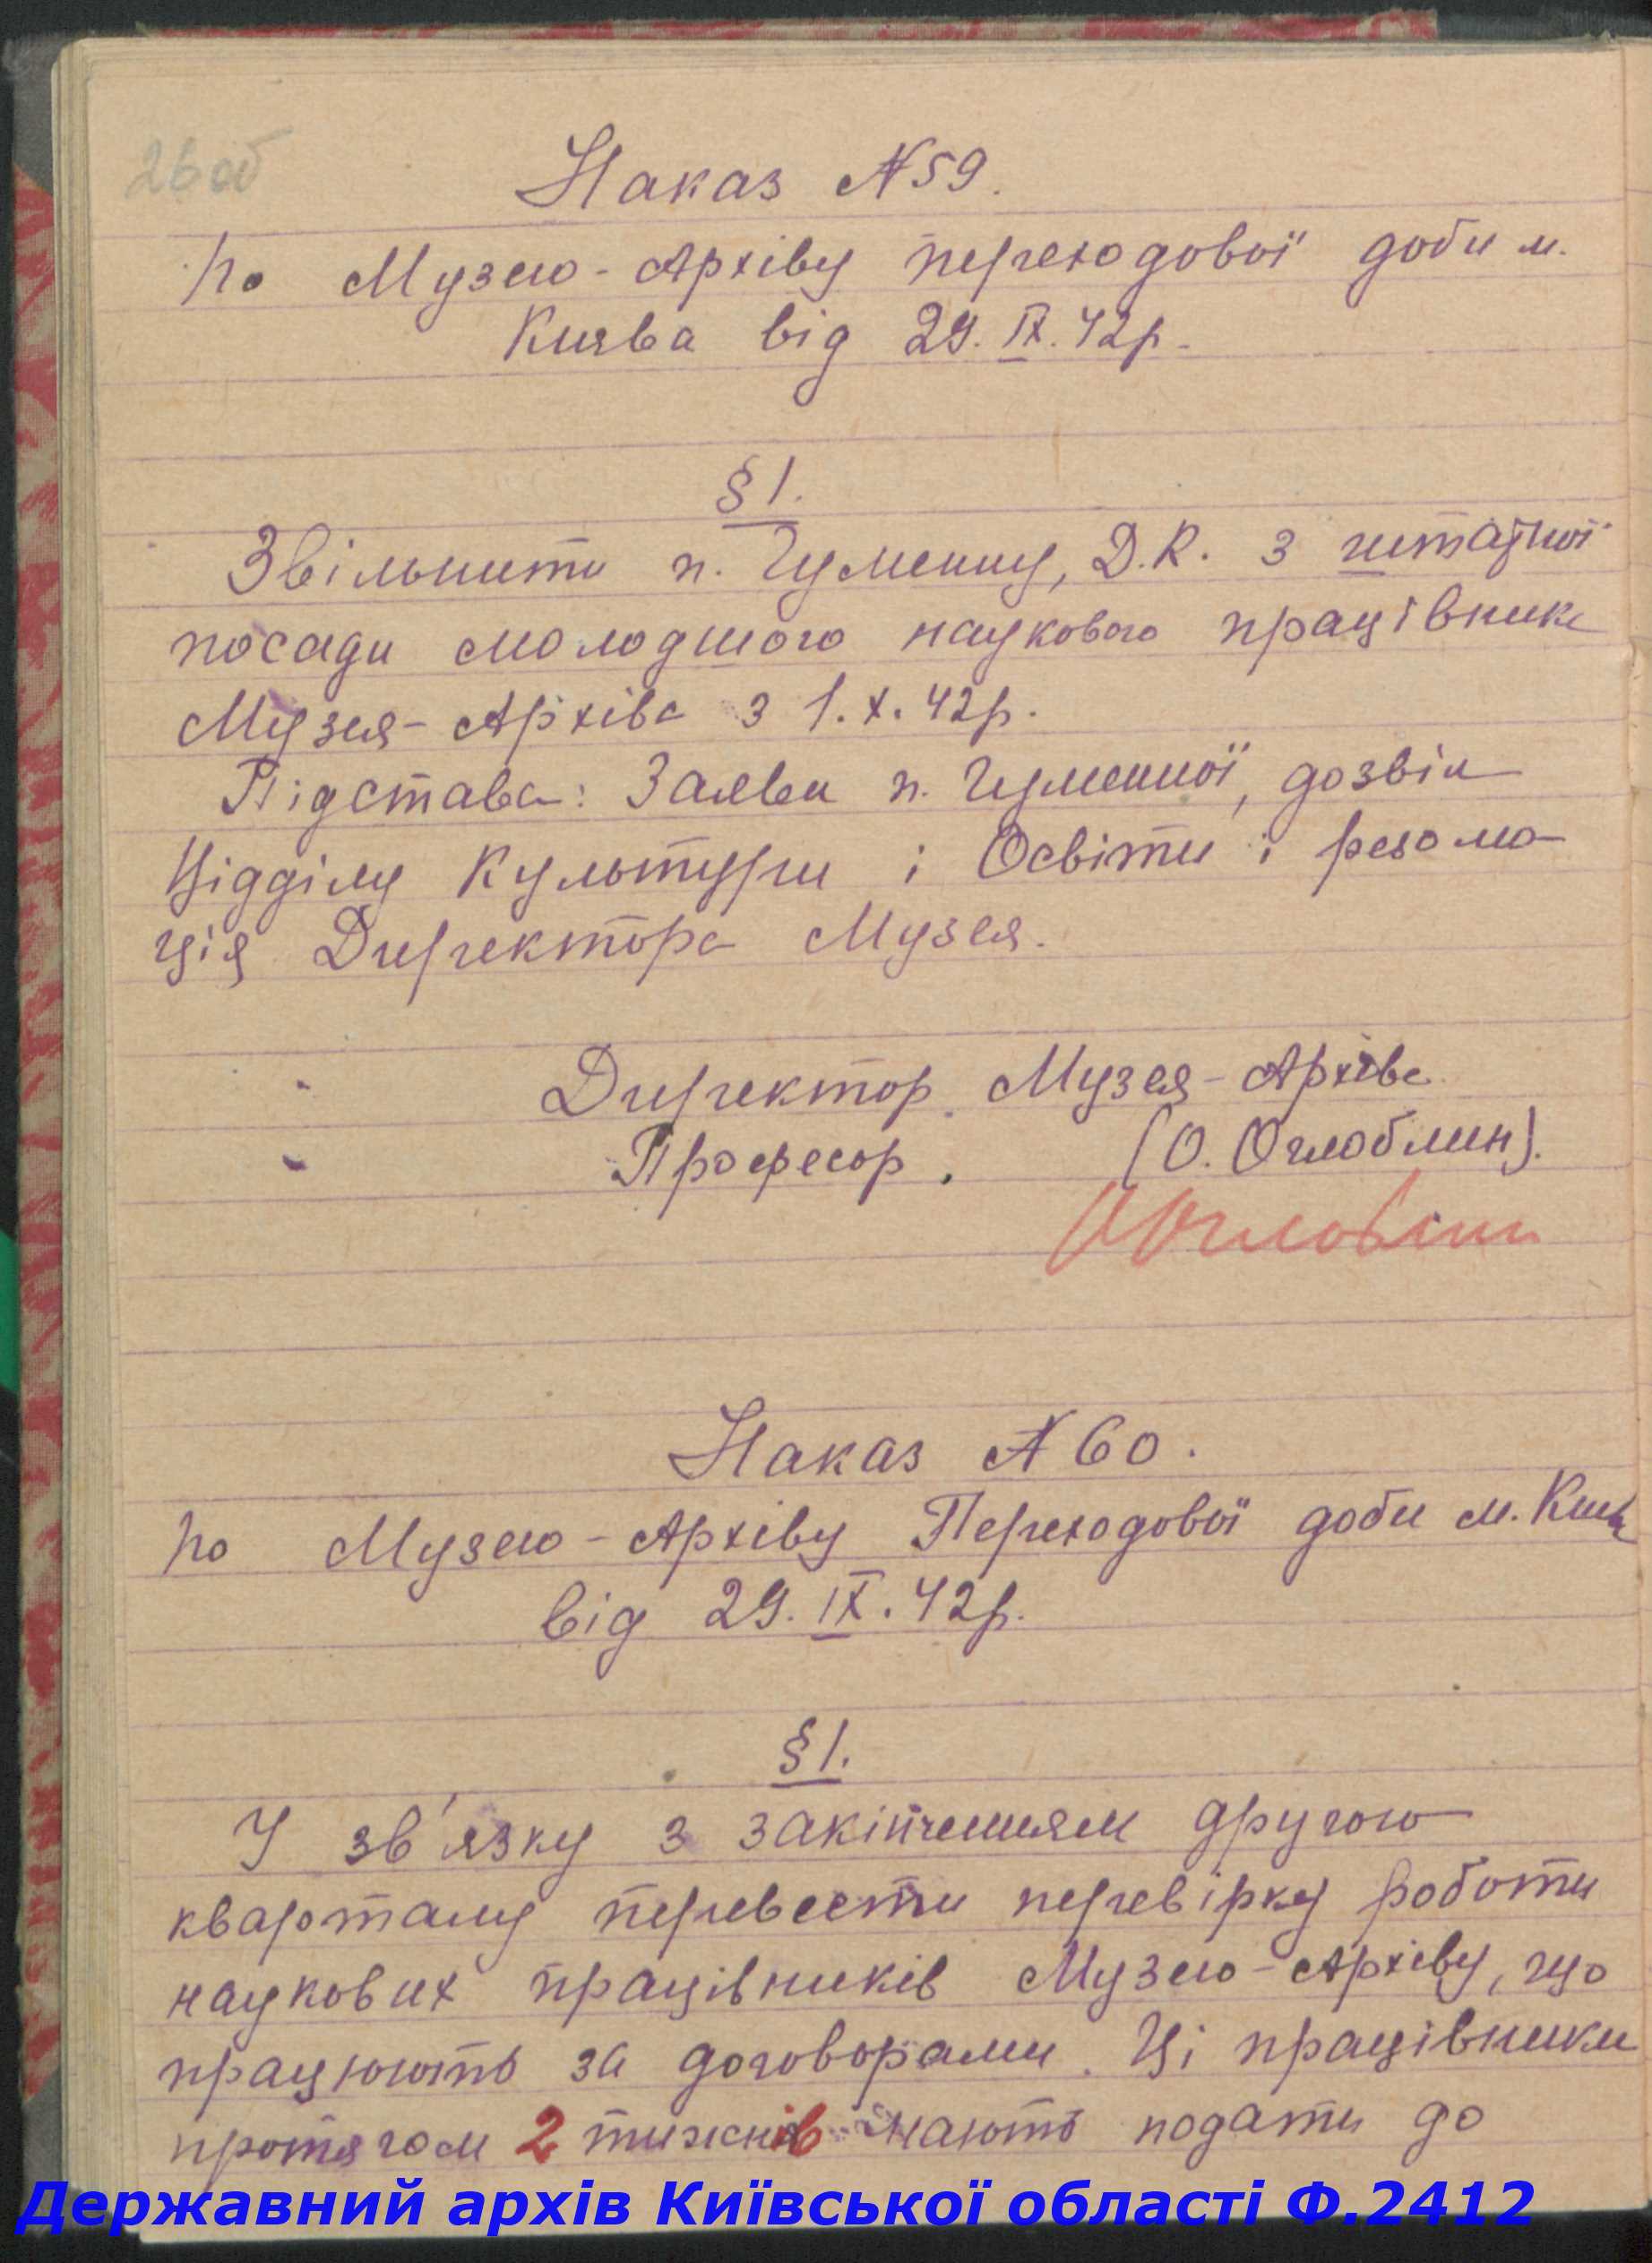 26об
Наказ №59.
По Музею-Архіву переходової доби м.
Києва від 29.IX.42р.
§1.
Звільнити п. Гуменну, Д.К. з штатної
посади молодшого наукового працівника
Музея-Архіва з 1.X.42р.
Підстава: Заява п. Гуменної, дозвіл
Відділу Культури і Освіти і резолю-
ція Директора Музея.
Директор Музея-Архіва
Професор. (О. Оглоблин).
О Оглоблин
Наказ №60.
По Музею-Архіву Переходової доби м. Києва
від 29.IX.42р.
§1.
У зв'язку з закінченням другого
кварталу перевести перевірку роботи
наукових працівників Музею-Архіву, що
працюють за договорами. Ці працівники
протягом 2 тижнів мають подати до
Державний архів Київської області Ф.2412